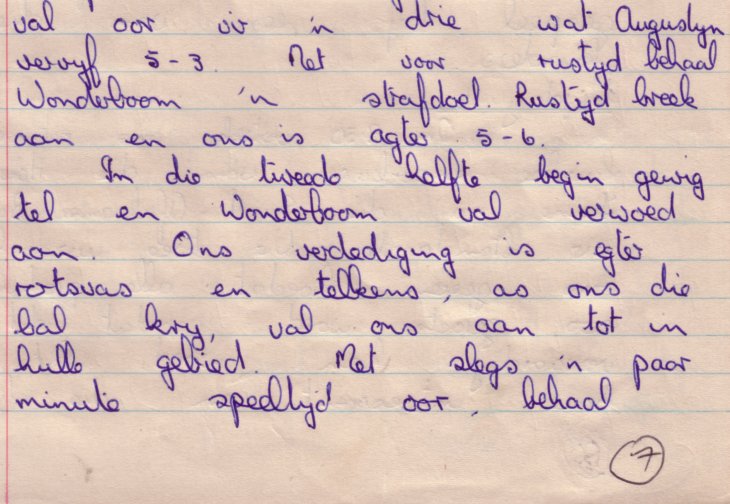 val oor vir 'n drie wat Augustyn
vervyf 5-3. Net voor rustyd behaal
Wonderboom 'n strafdoel. Rustyd breek
aan en ons is agter 5-6.
In die tweede helfte begin gewig
tel en Wonderboom val verwoed
aan. Ons verdediging is egter
rotsvas en telkens, as ons die
bal kry, val ons aan tot in
hulle gebied. Met slegs 'n paar
minute speeltyd oor, behaal
7